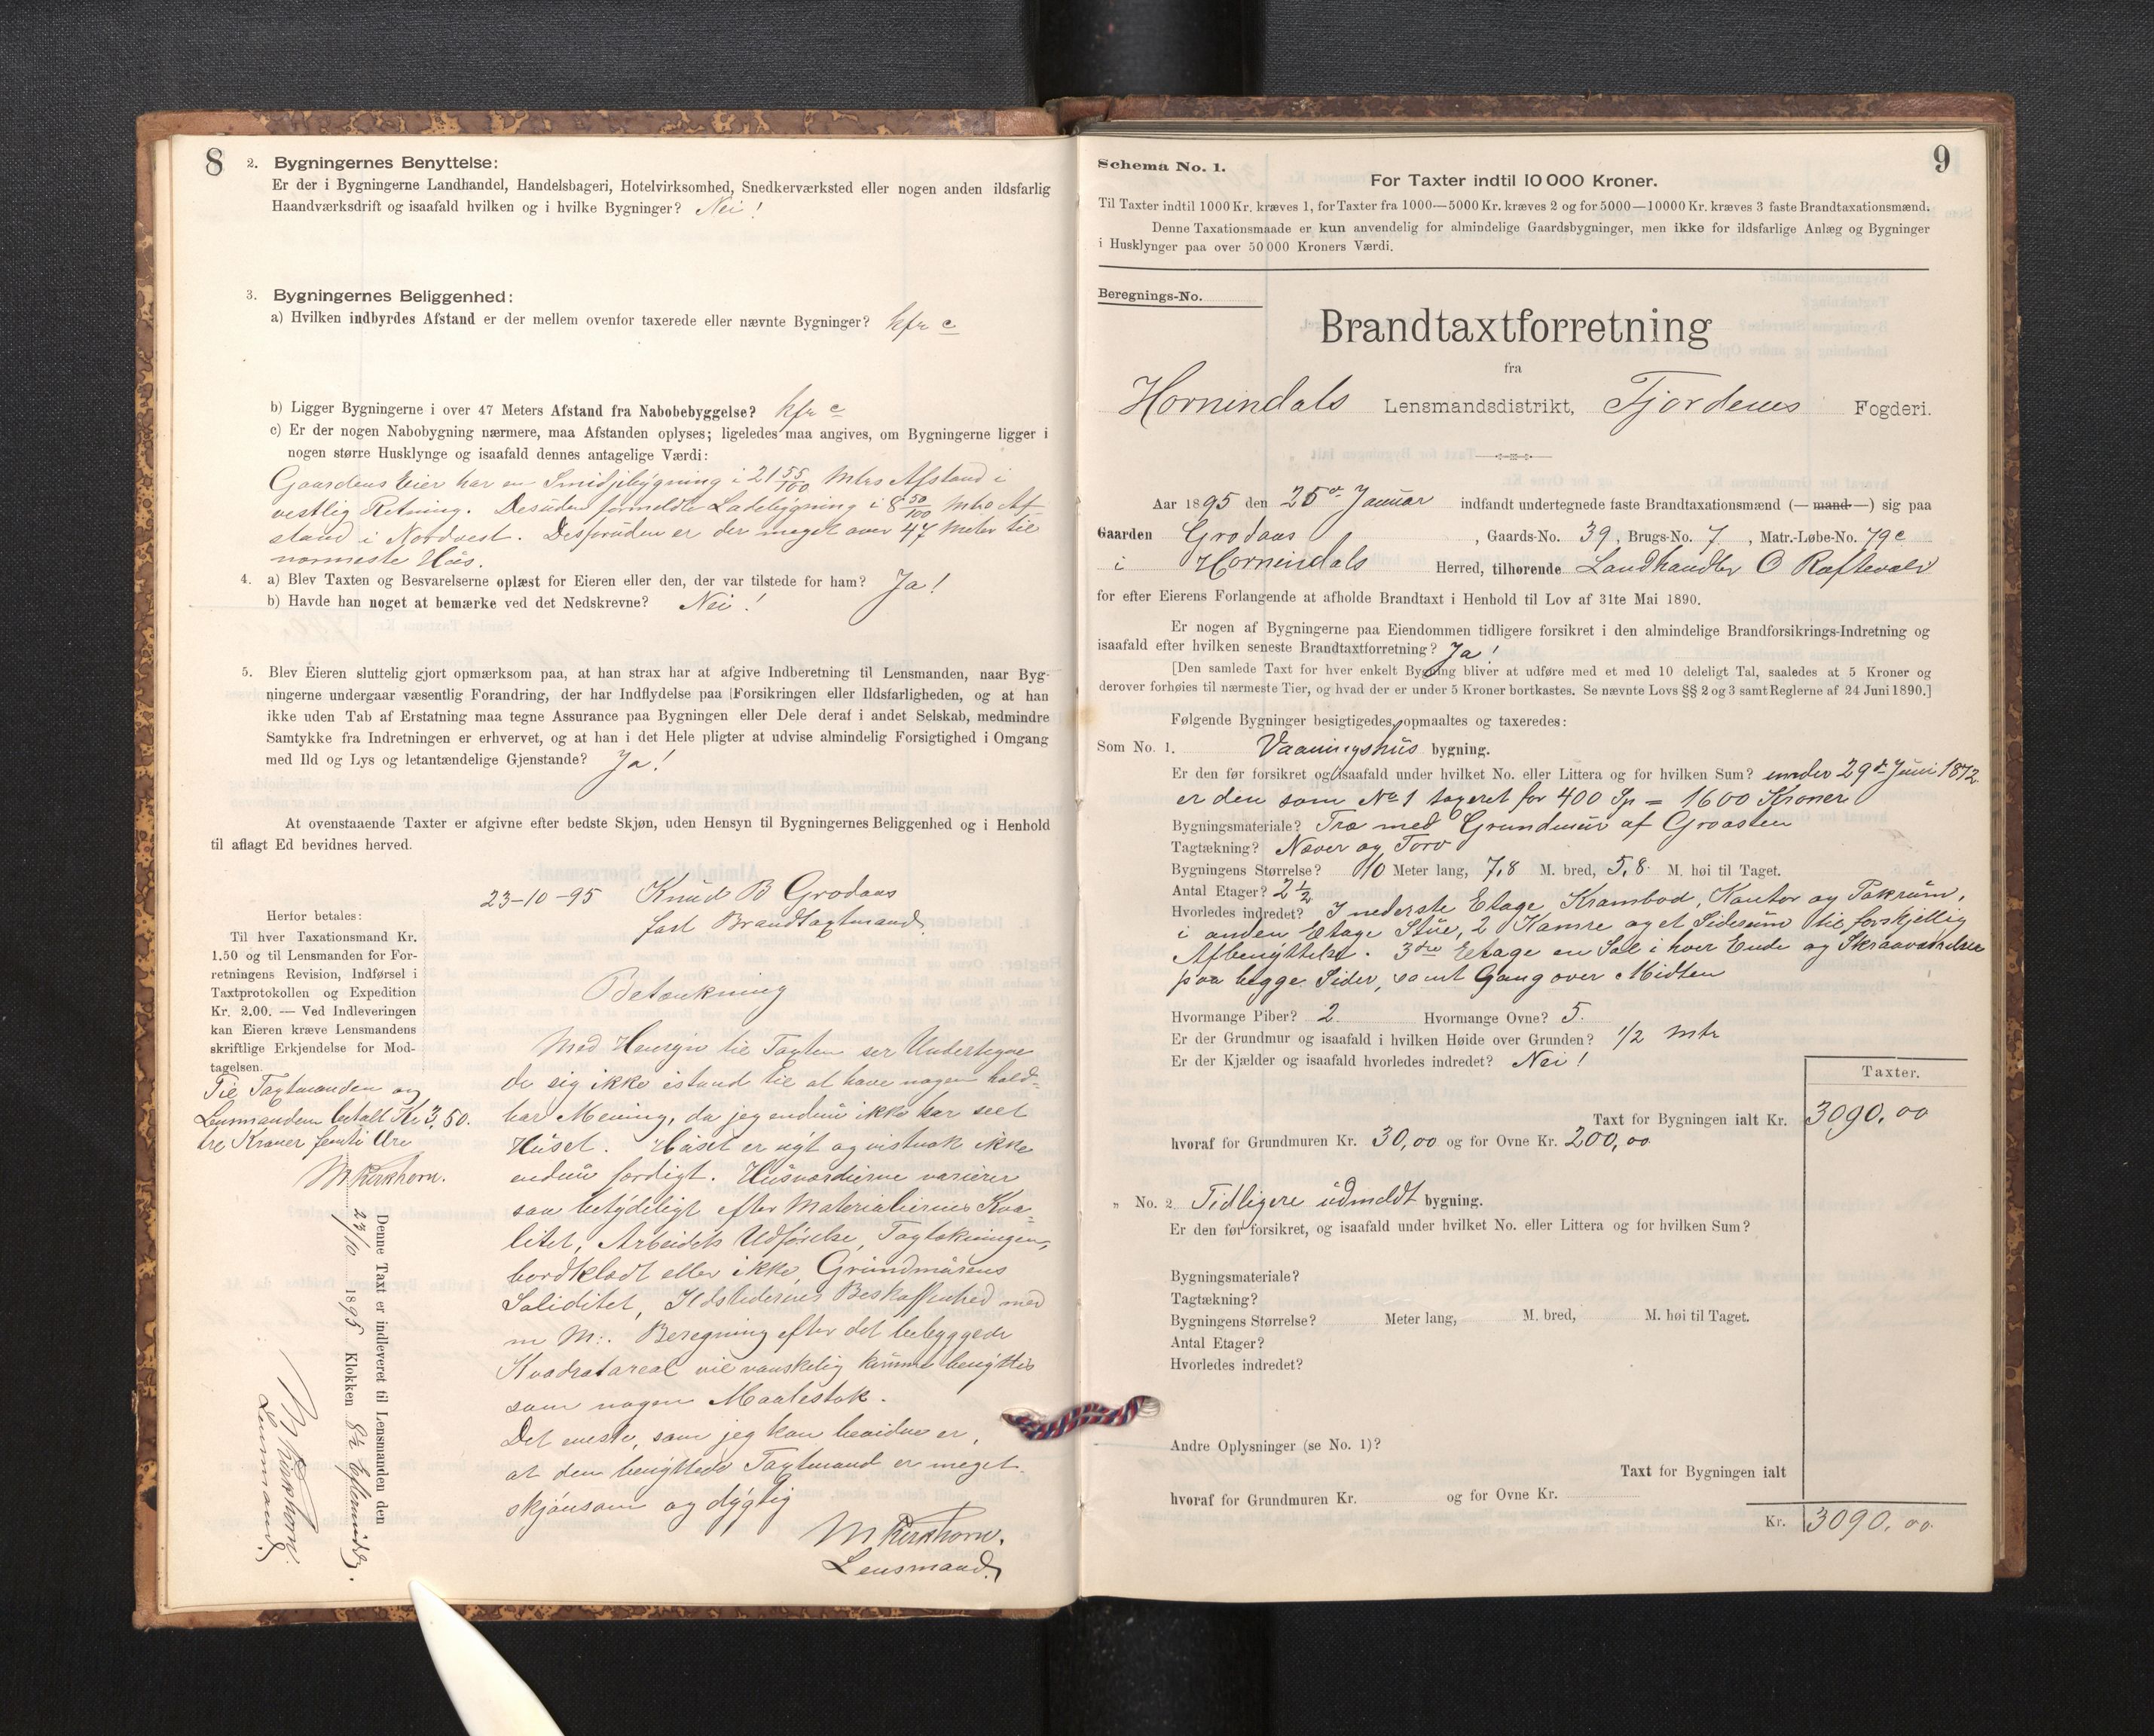 8
2. Bygningernes Benyttelse:
Er der i Bygningerne Landhandel, Handelsbageri, Hotelvirksomhed, Snedkerværksted eller nogen anden ildsfarlig
Haandværksdrift og isaafald hvilken og i hvilke Bygninger? Nei!
3. Bygningernes Beliggenhed:
a) Hvilken indbyrdes Afstand er der mellem ovenfor taxerede eller nævnte Bygninger? kfr c
b) Ligger Bygningerne i over 47 Meters Afstand fra Nabobebyggelse? kfr c
c) Er der nogen Nabobygning nærmere, maa Afstanden oplyses; ligeledes maa angives, om Bygningerne ligger i
nogen større Husklynge og isaafald dennes antagelige Værdi:
Gaardens Eier har en Smidjebygning i 21 55/100 Mtrs Afstand i
vestlig Retning. Desuden formeldte Ladebygning i 8 50/100 Mtrs Af-
stand i Nordvest. Desforuden er der meget over 47 Meter til
nærmeste Hus.
4. a) Blev Taxten og Besvarelserne oplæst for Eieren eller den, der var tilstede for ham? Ja!
b) Havde han noget at bemærke ved det Nedskrevne? Nei!
5. Blev Eieren sluttelig gjort opmærksom paa, at han strax har at afgive Indberetning til Lensmanden, naar Byg-
ningerne undergaar væsentlig Forandring, der har Indflydelse paa Forsikringen eller Ildsfarligheden, og at han
ikke uden Tab af Erstatning maa tegne Assurance paa Bygningen eller Dele deraf i andet Selskab, medmindre
Samtykke fra Indretningen er erhvervet, og at han i det Hele pligter at udvise almindelig Forsigtighed i Omgang
med Ild og Lys og letantændelige Gjenstande? Ja!
At ovenstaaende Taxter er afgivne efter bedste Skjøn, uden Hensyn til Bygningernes Beliggenhed og i Henhold
til aflagt Ed bevidnes herved.
23-10-95 Knud B Grodaas
fast Brandtaxtmand
Herfor betales:
Til hver Taxationsmand Kr.
1.50 og til Lensmanden for For-
retningens Revision, Indførsel i
Taxtprotokollen og Expedition
Kr. 2.00. — Ved Indleveringen
kan Eieren kræve Lensmandens
skriftlige Erkjendelse for Mod-
tagelsen.
Til Taxtmanden og
Lensmanden betalt Kr 3,50.
tre Kroner femti Øre
M Kirkhorn.
Denne Taxt er indleveret til Lensmanden den
23/10 1895 Klokken 8½ Eftermiddag.
M Kirkhorn.
Lensmand.
Betænkning
Med Hensyn til Taxten ser Undertegne
de sig ikke istand til at have nogen hold-
bar Mening, da jeg endnu ikke har seet
Huset. Huset er nyt og vistnok ikke
endnu færdigt. Husværdierne varierer
saa betydeligt efter Materialiernes Kva-
litet, Arbeidets Udførelse, Tagtækningen,
bordklædt eller ikke, Grundmurens
Soliditet, Ildstedernes Beskaffenhed med
m M:. Beregning efter det bebyggede
Kvadratareal vil vanskelig kunne benyttes
som nogen Maalestok.
Det eneste, som jeg kan bevidne er,
at den benyttede Taxtmand er meget
skjønsom og dygtig
M Kirkhorn.
Lensmand.
9
Schema No. 1.
For Taxter indtil 10 000 Kroner.
Til Taxter indtil 1000 Kr. kræves 1, for Taxter fra 1000—5000 Kr. kræves 2 og for 5000—10000 Kr. kræves 3 faste Brandtaxationsmænd.
Denne Taxationsmaade er kun anvendelig for almindelige Gaardsbygninger, men ikke for ildsfarlige Anlæg og Bygninger
i Husklynger paa over 50 000 Kroners Værdi.
Beregnings-No.
Brandtaxtforretning
fra
Hornindals Lensmandsdistrikt, Fjordenes Fogderi.
Aar 1895 den 25de Januar indfandt undertegnede faste Brandtaxationsmænd (— mand —) sig paa
Gaarden Grodaas, Gaards-No. 39, Brugs-No. 7, Matr.-Løbe-No. 79c
i Hornindals Herred, tilhørende Landhandler O Raftevold
for efter Eierens Forlangende at afholde Brandtaxt i Henhold til Lov af 31te Mai 1890.
Er nogen af Bygningerne paa Eiendommen tidligere forsikret i den almindelige Brandforsikrings-Indretning og
isaafald efter hvilken seneste Brandtaxtforretning? Ja!
[Den samlede Taxt for hver enkelt Bygning bliver at udføre med et med 10 deleligt Tal, saaledes at 5 Kroner og
derover forhøies til nærmeste Tier, og hvad der er under 5 Kroner bortkastes. Se nævnte Lovs §§ 2 og 3 samt Reglerne af 24 Juni 1890.]
Følgende Bygninger besigtigedes, opmaaltes og taxeredes:
Som No. 1. Vaaningshus bygning.
Er den før forsikret og isaafald under hvilket No. eller Littera og for hvilken Sum? under 29de Juni 1872
er den som No 1 taxeret for 400 Sp = 1600 Kroner
Bygningsmateriale? Træ med Grundmur af Graasten
Tagtækning? Næver og Torv
Bygningens Størrelse? 10 Meter lang, 7,8 M. bred, 5,8 M. høi til Taget.
Antal Etager? 2½
Hvorledes indredet? I nederste Etage Krambod, Kontor og Pakrum,
i anden Etage Stue, 2 Kamre og et Siderum til forskjellig
Afbenyttelse. 3die Etage en Sal i hver Ende og Skraaværelser
paa begge Sider, samt Gang over Midten
Hvormange Piber? 2 Hvormange Ovne? 5.
Er der Grundmur og isaafald i hvilken Høide over Grunden? 1/2 Mtr
Er der Kjælder og isaafald hvorledes indredet? Nei!
Taxter.
Taxt for Bygningen ialt Kr. 3090,00
hvoraf for Grundmuren Kr. 30,00 og for Ovne Kr. 200,00
„ No. 2 Tidligere udmeldt bygning.
Er den før forsikret, og isaafald under hvilket No. eller Littera og for hvilken Sum?
Bygningsmateriale?
Tagtækning?
Bygningens Størrelse? Meter lang, M. bred, M. høi til Taget.
Antal Etager?
Hvorledes indredet?
Andre Oplysninger (se No. 1)?
Taxt for Bygningen ialt
hvoraf for Grundmuren Kr. og for Ovne Kr.
Kr. 3090,00